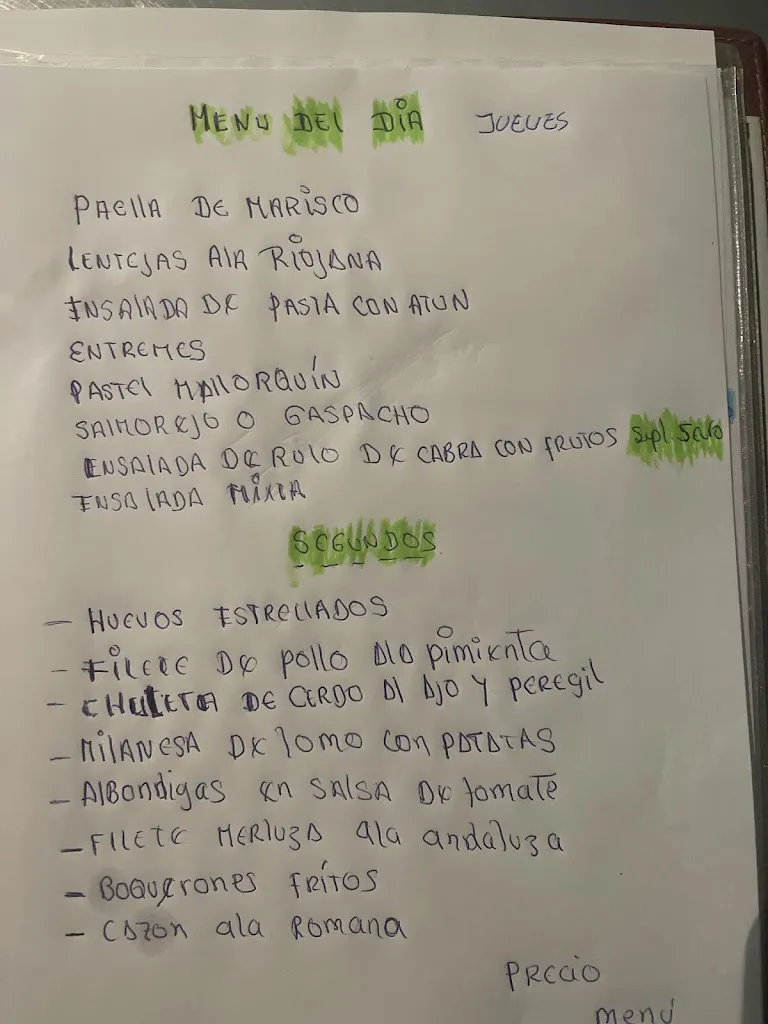 MENU DEL DIA JUEVES
PAELLA DE MARISCO
LENTEJAS ALA RIOJANA
ENSALADA DE PASTA CON ATUN
ENTREMES
PASTEL MALLORQUÍN
SALMOREJO O GASPACHO
ENSALADA DE RULO DE CABRA CON FRUTOS Supl
ENSALADA MIXTA
SEGUNDOS
- HUEVOS ESTRELLADOS
- FILETE DE POLLO ALA PIMIENTA
- CHULETA DE CERDO AL AJO Y PEREGIL
- MILANESA DE LOMO CON PATATAS
- ALBONDIGAS EN SALSA DE TOMATE
- FILETE MERLUZA ALA ANDALUZA
- BOQUERONES FRÍTOS
- CAZON ALA ROMANA
PRECIO
MENÚ